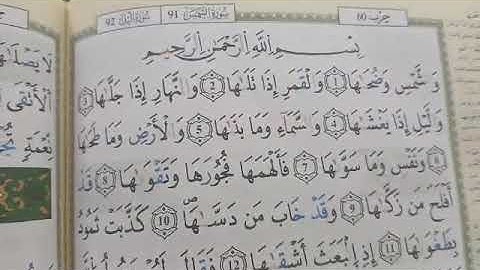 حزب 60
سورة الشمس 91
سورة الليل 92
بِسْمِ اللَّهِ الرَّحْمَٰنِ الرَّحِيمِ
وَ شَّمْسِ وَضُحَىٰهَا (1) وَ لْقَمَرِ إِذَا تَلَىٰهَا (2) وَ لنَّهَارِ إِذَا جَلَّىٰهَا (3)
وَ لَّيْلِ إِذَا يَغْشَىٰهَا (4) وَ سَّمَآءِ وَمَا بَنَىٰهَا (5) وَ الْأَرْضِ وَمَا طَحَىٰهَا
(6) وَنَفْسٍ وَمَا سَوَّىٰهَا (7) فَأَلْهَمَهَا فُجُورَهَا وَتَقْوَىٰهَا (8) قَدْ
أَفْلَحَ مَن زَكَّىٰهَا (9) وَقَدْ خَابَ مَن دَسَّىٰهَا (10) كَذَّبَتْ ثَمُودُ
بِطَغْوَىٰهَا (11) إِذِ انْبَعَثَ أَشْقَىٰهَا (12) فَقَالَ
لَا يَصْلَىٰهَا
الْأَتْقَى
نِعْمَةٍ